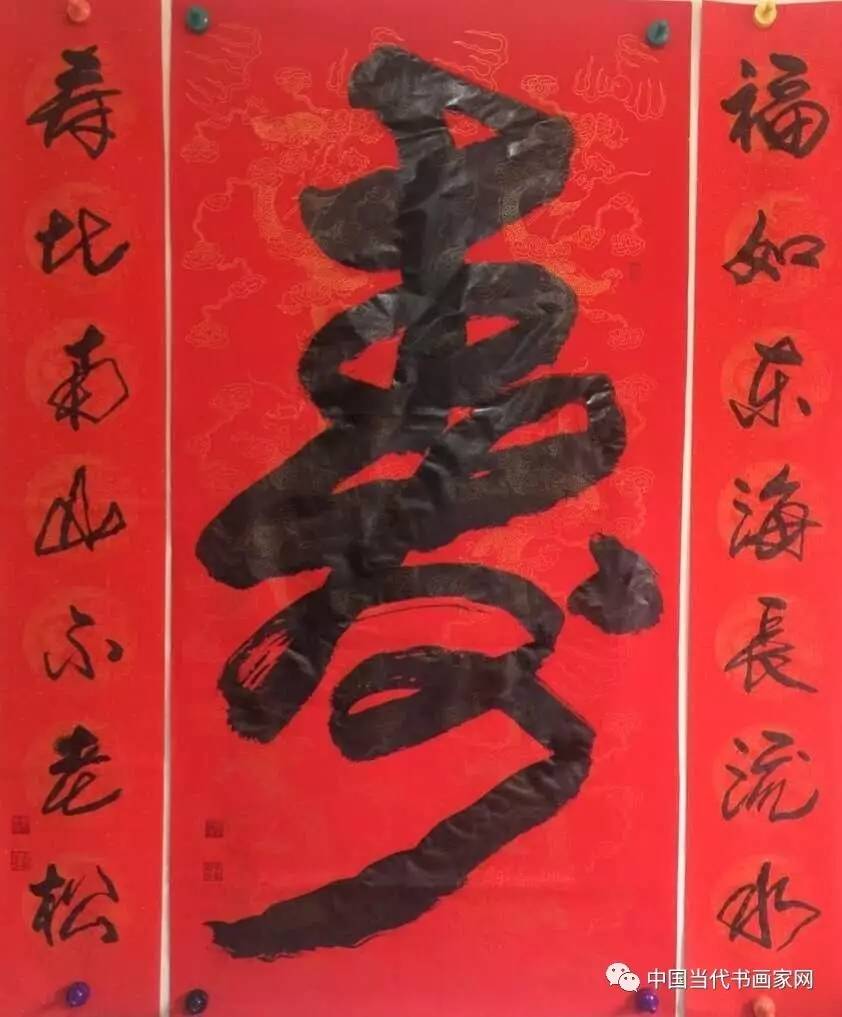 福如东海長流水
壽
寿比南山不老松
中国当代书画家网